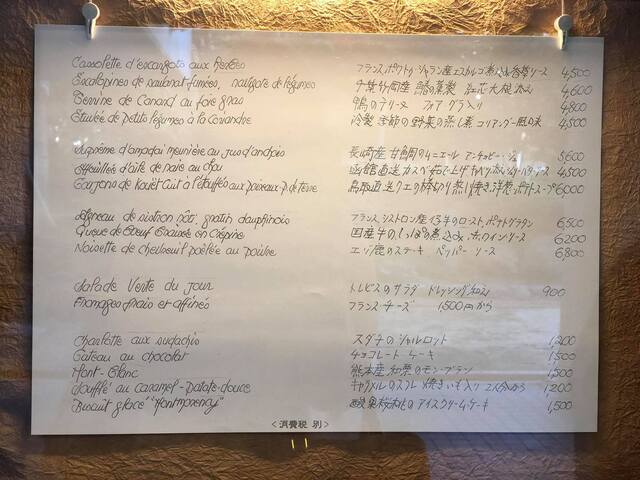 Cassolette d'escargots aux herbes フランス、ポワトゥ・シャラン産エスカルゴ煮込み 香草ソース 4,500
Escalopines de fumées, de légumes 千葉竹岡産 の燻製 紅芯大根 4,600
Terrine de Canard au foie gras 鴨のテリーヌ フォアグラ入り 4,800
Etuvée de petits légumes à la Coriandre 冷製 季節の野菜の蒸し煮 コリアンダー風味 4,500
Suprême d'amadai meunière au jus d'anchois 長崎産 甘鯛のムニエール アンチョビー・ジュ 5,600
d'aile de raie au chou 函館直送 カスベ 4,500
鳥取直送クエの棒切り蒸し焼き、洋葱、ポテトスープ 6,000
Agneau de sistron rôti gratin dauphinois フランス、シストロン産 仔羊のロースト、ポテトグラタン 6,500
Queue de Boeuf Braisée en Crépine 国産牛のしっぽの煮込み 赤ワインソース 6,200
Noisette de Chevreuil poêlée au poivre エゾ鹿のステーキ ペッパー・ソース 6,800
Salade Verte du jour トレビスのサラダ ドレッシング和え 900
Fromages frais et affinés フランス・チーズ 1,500円から
Charlotte aux sudachis スダチのシャルロット 1,200
Gâteau au chocolat チョコレートケーキ 1,500
Mont-Blanc 熊本産 和栗のモン・ブラン 1,500
Soufflé au caramel-Patate-douce キャラメルのスフレ 焼きいも入り 2人分から 1,200
Biscuit glacé "Montmorency" 酸果桜桃のアイスクリームケーキ 1,500
<消費税 別>